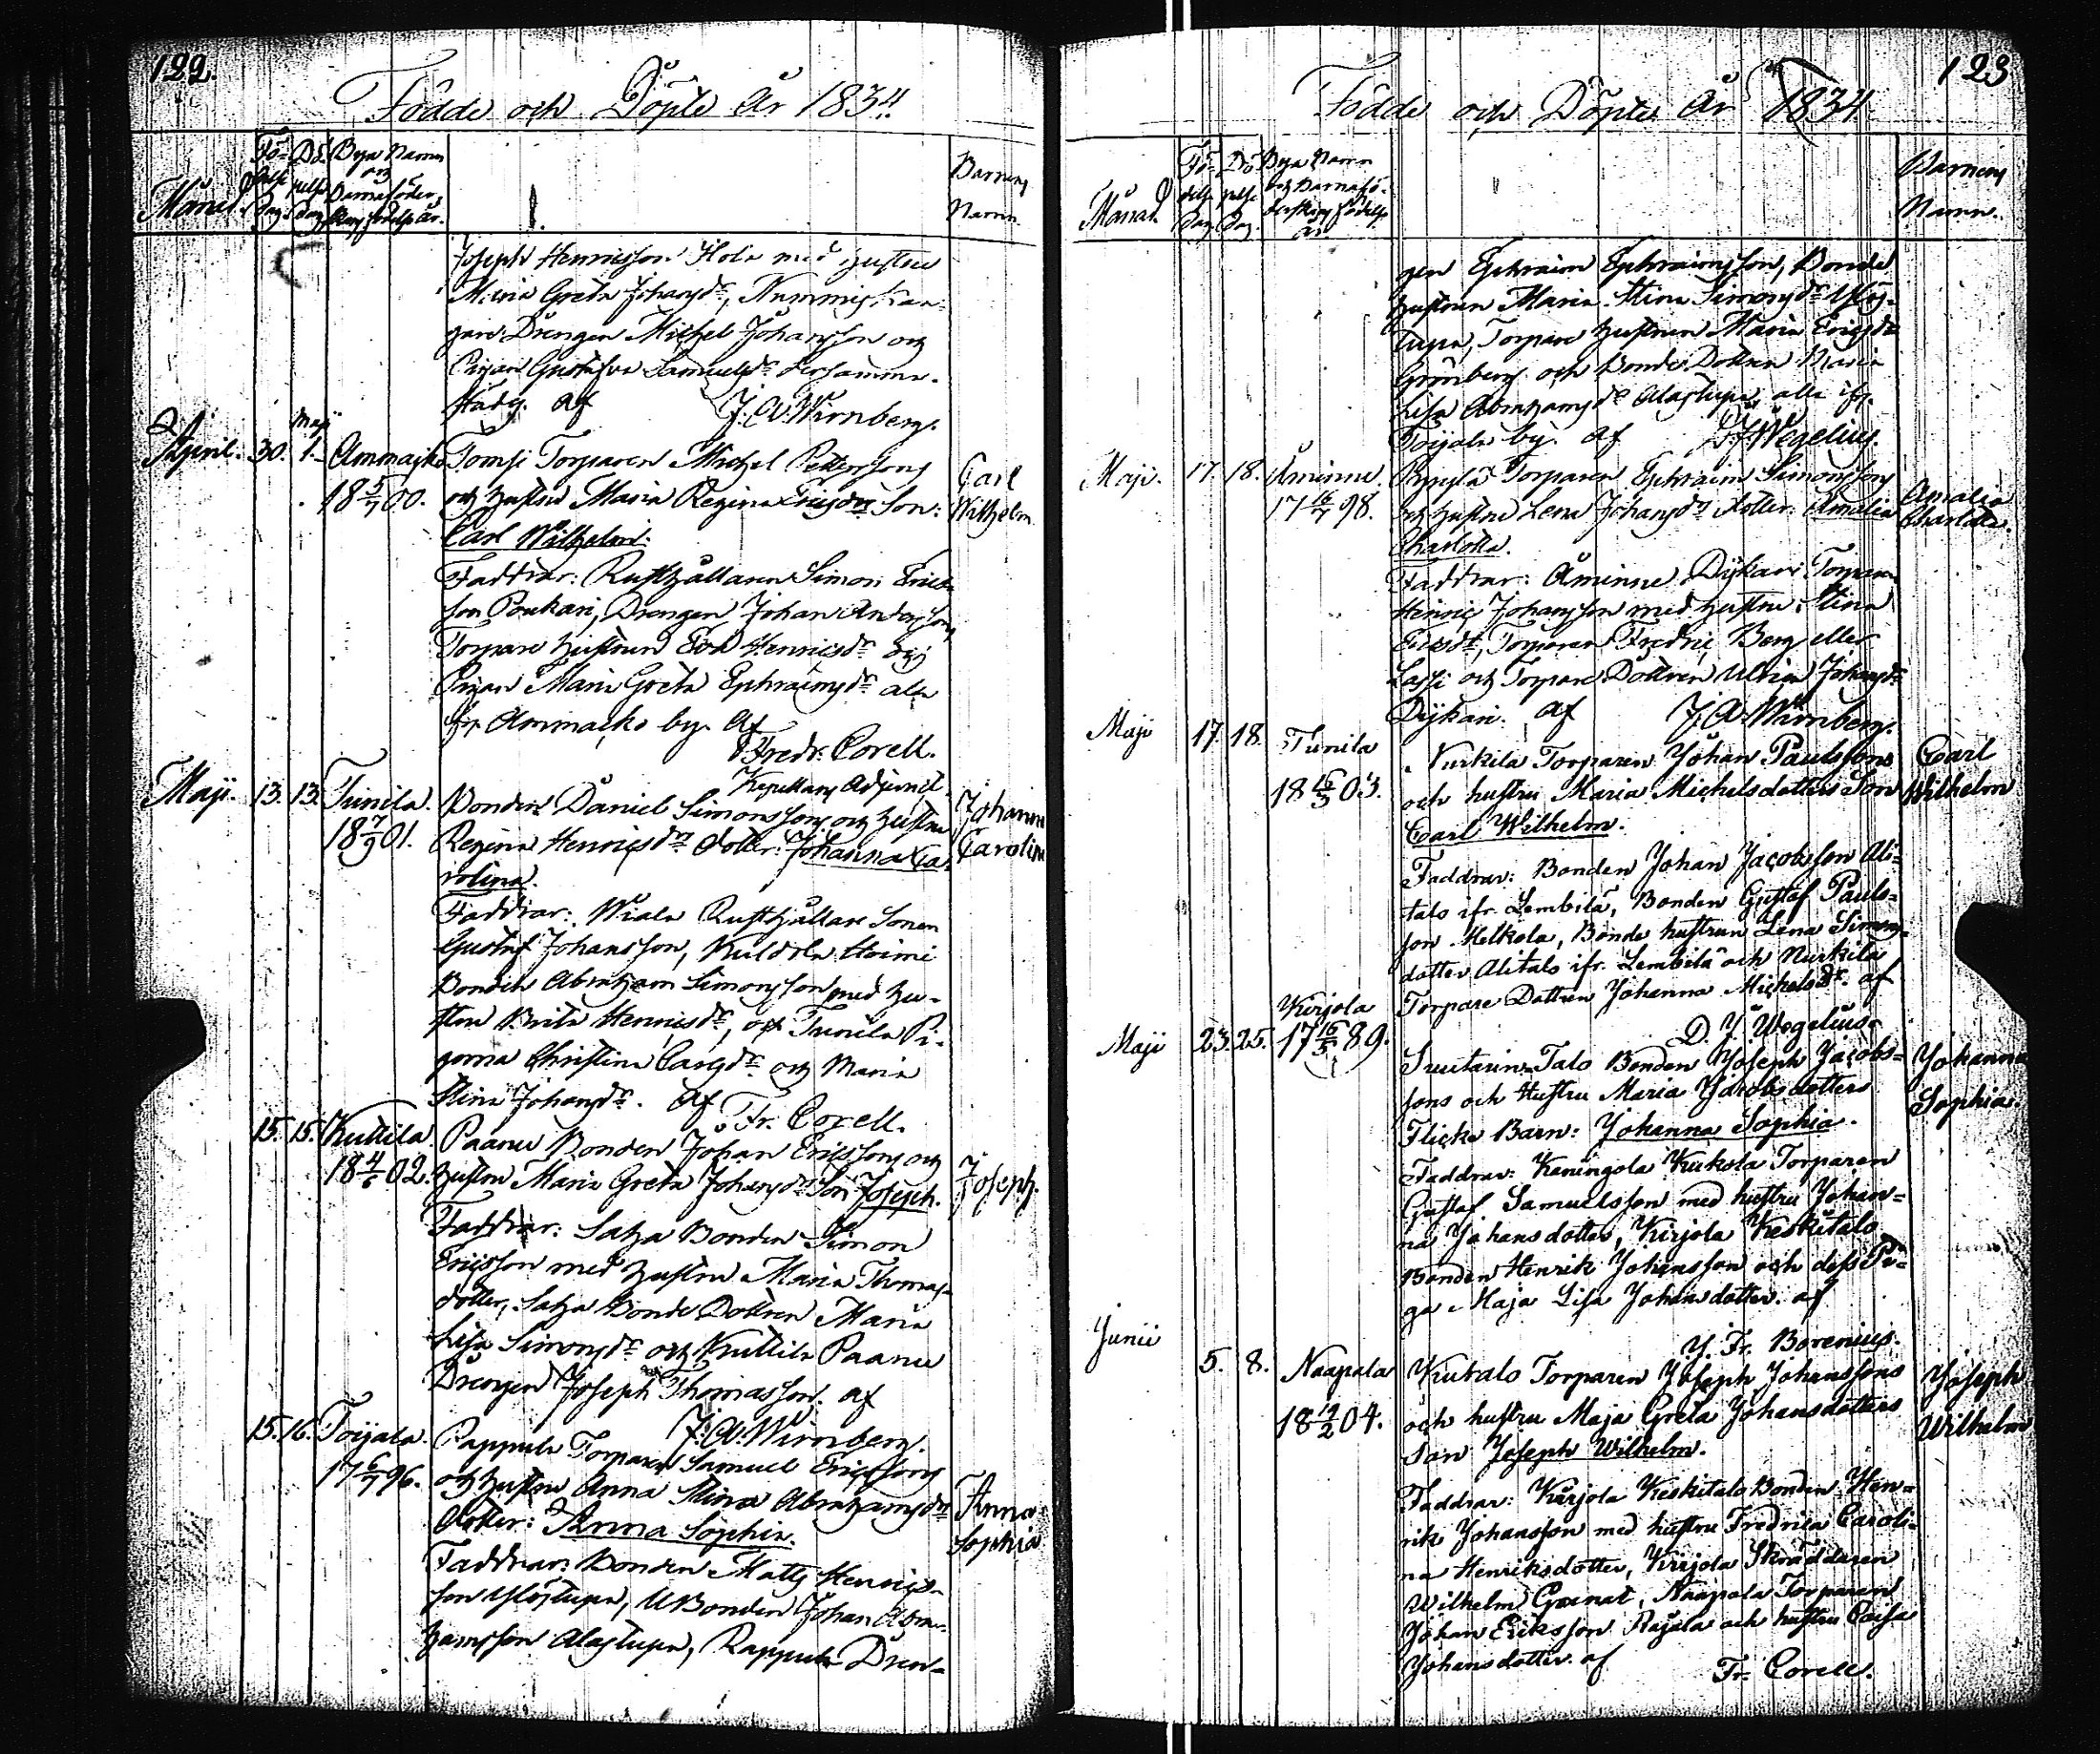 122.
Födde och Döpte År 1834.
Månad
Fö- delse Dag
Dö- pelse Dag
Bya Namn och Barnaföder- skans födelse år.
Barnens Namn.
Joseph Henricsson Hola med hustru
Maria Greta Johansdr, Nummis
gare Drengen Michel Johansson och
Pigan Gustafva Samuelsdr dersamma-
städs. af J. W. Wirnberg.
April. 30. Maji 1. Ammajko Tomsi Torparen Michel Petterssons Carl
18 5/7 00. och hustru Maria Regina Ericsdrs Son: Wilhelm
Carl Wilhelm.
Faddrar: Rusthållaren Simon Erics-
son Poukari, Drengen Johan Andersson,
Torpare hustrun Eva Henricsdr och
Pigan Maria Greta Ephraimsdr alla
fr. Ammajko by. Af
Fredr. Corell.
Kapellans Adjunct.
Maji. 13. 13. Tunila. Bonden Daniel Simonssons och hustru Johanna
18 7/9 01. Regina Henricsdrs dotter: Johanna Ca- Carolina
rolina.
Faddrar: Wiala Rusthållare Sonen
Gustaf Johansson, Kuldola Hoimi
Bonden Abraham Simonsson med hu-
stru Brita Henricsdr, och Tunila Pi-
gorna Christina Carlsdr och Maria
Stina Johansdr. Af Fr. Corell.
15. 15. Kuttila. Paanu Bonden Johan Ericssons och
18 4/6 02. hustru Maria Greta Johansdrs Son Joseph. Joseph.
Faddrar: Satza Bonden Simon
Ericsson med hustru Maria Thomas-
dotter, Satza Bonde Dottren Maria
Lisa Simonsdr och Kuttila Paanu
Drengen Joseph Thomasson. af
J. W. Wirnberg.
15. 16. Toijala. Pappula Torparen Samuel Ericssons
17 6/7 96. och hustru Anna Stina Abrahamsdrs Anna
dotter: Anna Sophia. Sophia
Faddrar: Bonden Matts Henrics-
son Ylöstupa, Bonden Johan Abra-
hamsson Alastupa, Pappula Dren-
123
Födde och Döpte År 1834.
Månad.
Fö- delse Dag
Dö- pelse Dag.
Bya Namn och Barnafö- derskans födelse år.
Barnens Namn.
gen Ephraim Ephraimsson, Bonde
hustrun Maria Stina Simonsdr Ylös-
tupa, Torpare hustrun Maria Ericsdr
Grönberg och Bonde Dottren Maria
Lisa Abrahamsdr Alastupa, alla ifr.
Toijala by. af D. J. Wegelius.
Maji. 17. 18. Åminne. Torparen Ephraim Simonssons Amalia
17 16/7 98. och hustru Lena Johansdrs dotter: Amalia Charlotta.
Charlotta.
Faddrar: Åminne Dijkari Torparen
Henric Johansson med hustru Stina
Ericsdr, Torparen Fredric Berg eller
Lassi och Torpare Dottren Ulrica Johansdr
Dijkari. af J. W. Wirnberg.
Maji 17. 18. Tunila Nurkila Torparen Johan Paulssons Carl
18 16/5 03. och hustru Maria Michelsdotters Son Wilhelm
Carl Wilhelm.
Faddrar: Bonden Johan Jacobsson Ali-
talo ifr. Lembilä, Bonden Gustaf Pauls-
son Melkola, Bonde hustrun Lena Simons-
dotter Alitalo ifr. Lembilä och Nurkila
Torpare Dottren Johanna Michelsdr. af
D. J. Wegelius.
Maji 23. 25. Kirjola
17 16/5 89. Suutarin-Talo Bonden Joseph Jacobs- Johanna
sons och Hustru Maria Jacobsdotters Sophia.
Flicke Barn: Johanna Sophia.
Faddrar: Kaningola Kukola Torparen
Gustaf Samuelsson med hustru Johan-
na Johansdotter, Kirjola Keskitalo
Bonden Henrik Johansson och dess Pi-
ga Maja Lisa Johansdotter. af
J. Fr. Borenius.
Junii 5. 8. Naapala Kutalo Torparen Joseph Johanssons Joseph
18 12/2 04. och hustru Maja Greta Johansdotters Wilhelm
Son Joseph Wilhelm.
Faddrar: Kirjola Keskitalo Bonden Hen-
rik Johansson med hustru Fredrica Caroli-
na Henriksdotter, Kirjola Skräddaren
Wilhelm Granat, Naapala Torparen
Johan Eriksson Rajala och hustru Caisa
Johansdotter. af Fr. Corell.